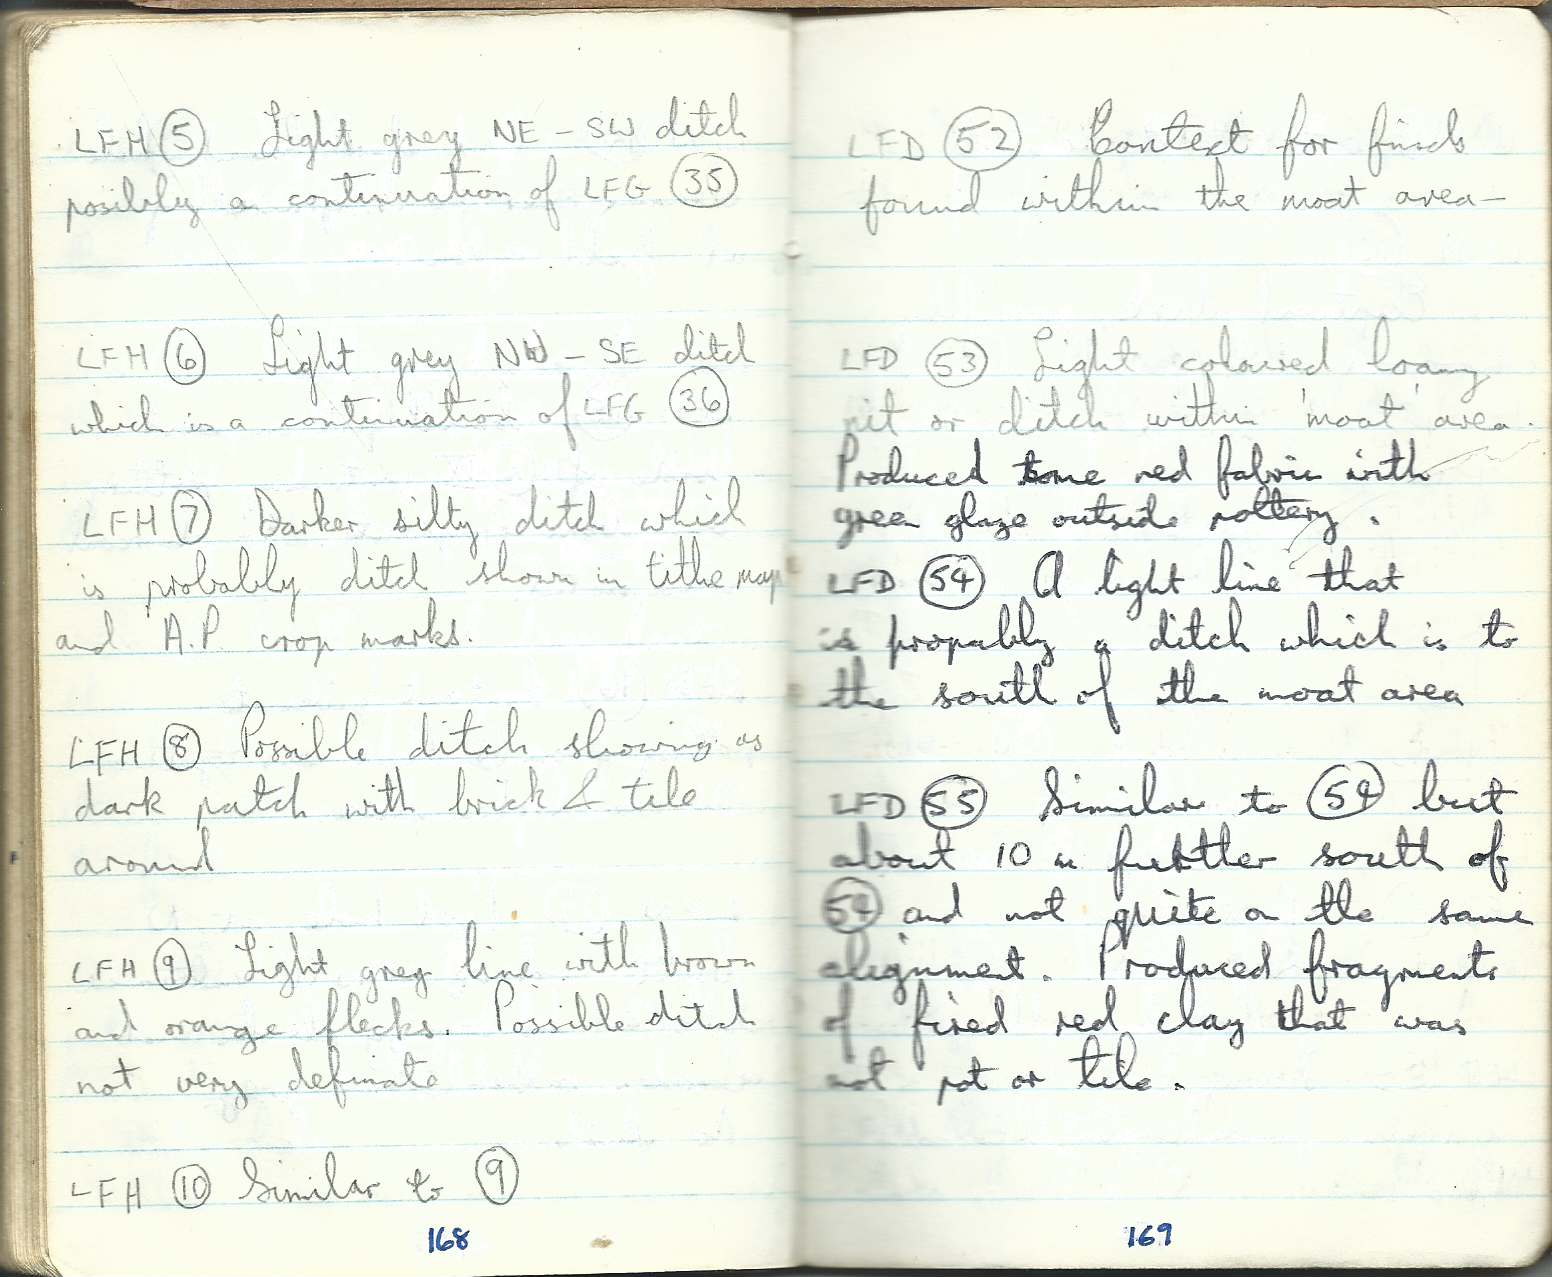 LFH (5) Light grey NE - SW ditch
posibly a continuation of LFG (35)
LFH (6) Light grey NW - SE ditch
which is a continuation of LFG (36)
LFH (7) Darker silty ditch which
is probably ditch shown in tithe map
and A.P. crop marks.
LFH (8) Possible ditch showing as
dark patch with brick & tile
around
LFH (9) Light grey line with brown
and orange flecks. Possible ditch
not very definate
LFH (10) Similar to (9)
168
LFD (52) Context for finds
found within the moat area -
LFD (53) Light coloured loamy
pit or ditch within 'moat' area.
Produced some red fabric with
green glaze outside pottery.
LFD (54) A light line that
is propably a ditch which is to
the south of the moat area
LFD (55) Similar to (54) but
about 10 m further south of
(54) and not quite on the same
alignment. Produced fragments
of fired red clay that was
not pot or tile.
169